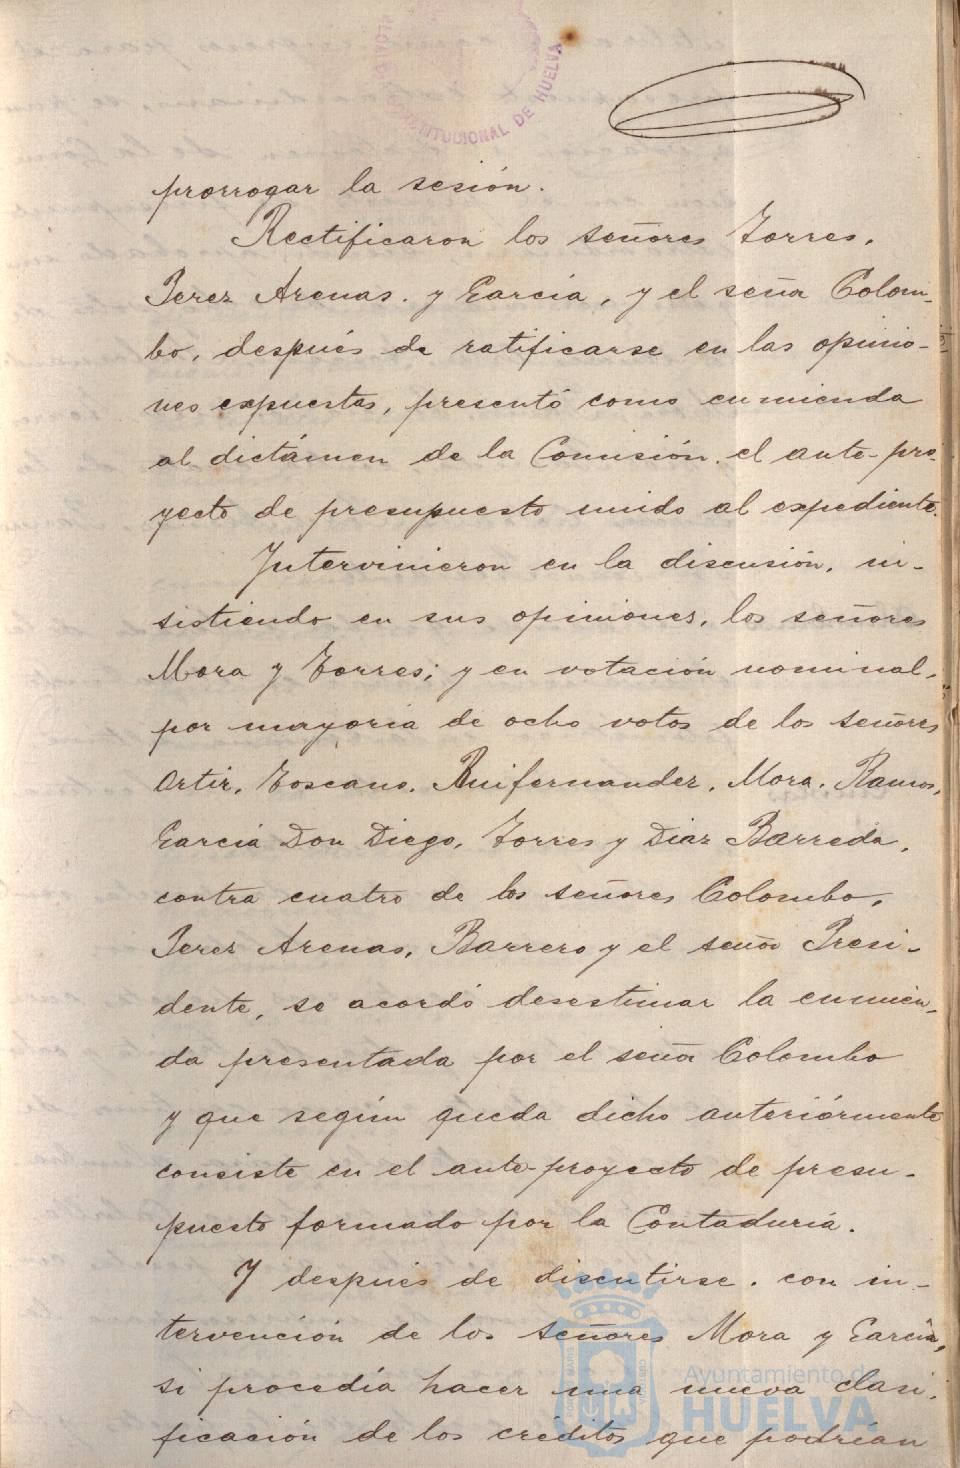 TITUCIONAL DE HUELVA
prorrogar la sesión.
Rectificaron los señores Torres,
Perez Arenas, y García, y el señor Colom-
bo, después de ratificarse en las opinio-
nes expuestas, presentó como enmienda
al dictámen de la Comisión, el ante-pro-
yecto de presupuesto unido al expediente.
Intervinieron en la discusión, in-
sistiendo en sus opiniones, los señores
Mora y Torres; y en votación nominal,
por mayoría de ocho votos de los señores
Ortiz, Toscano, Ruifernandez, Mora, Ramos,
García Don Diego, Torres y Diaz Barreda,
contra cuatro de los señores Colombo,
Perez Arenas, Barrero y el señor Presi-
dente, se acordó desestimar la enmien-
da presentada por el señor Colombo
y que según queda dicho anteriórmente
consiste en el ante-proyecto de presu-
puesto formado por la Contaduría.
Y después de discutirse, con in-
tervención de los señores Mora y García,
si procedía hacer una nueva clasi-
ficación de los créditos que podrían
Ayuntamiento de
HUELVA